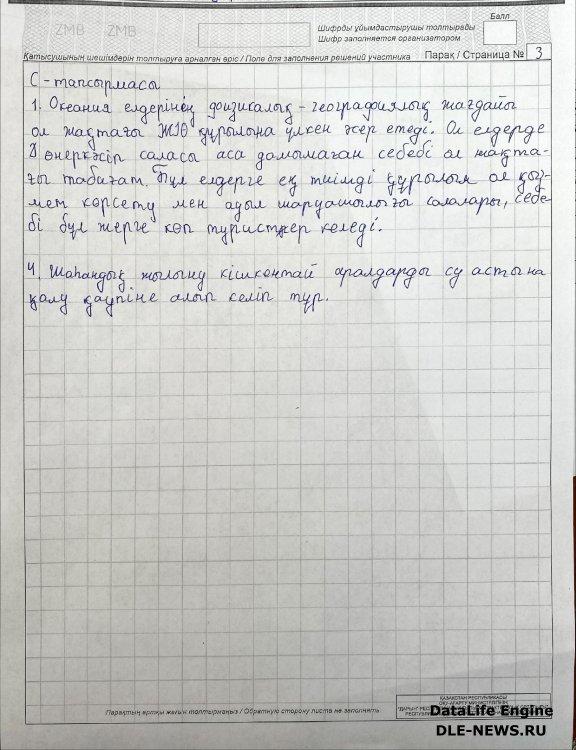 ZMB ZMB
Шифрды ұйымдастырушы толтырады
Шифр заполняется организатором
Балл
Қатысушының шешімдерін толтыруға арналған өріс / Поле для заполнения решений участника
Парақ / Страница № 3
С - тапсырмасы
1. Океания елдерінің физикалық - географиялық жағдайы
ол жақтағы ЖІӨ құрылына үлкен әсер етеді. Ол елдерде
өнеркәсіп саласы аса дамымаған себебі ол жақта-
ғы табиғат. Бұл елдерге ең тиімді құрылым ол қыз-
мет көрсету мен ауыл шаруашылығы салалары, себе-
бі бұл жерге көп туристжер келеді.
4. Шаһандық жылыну кішкентай аралдарды су астына
қалу қаупіне алып келіп тұр.
Парақтың артқы жағын толтырмаңыз / Обратную сторону листа не заполнять
ҚАЗАҚСТАН РЕСПУБЛИКАСЫ
ОҚУ-АҒАРТУ МИНИСТРЛІГІНІҢ
DataLife Engine
DLE-NEWS.RU